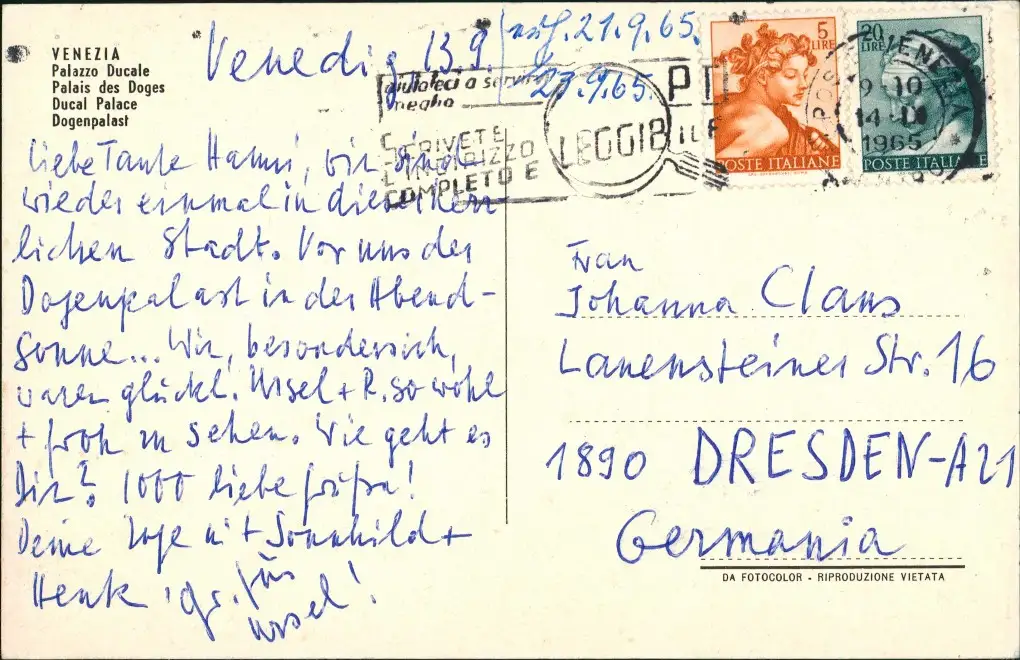 VENEZIA
Palazzo Ducale
Palais des Doges
Ducal Palace
Dogenpalast
Venedig 13.9.
21.9.65.
23.9.65.
aiutateci a servirvi
meglio
SCRIVETE
L'INDIRIZZO
COMPLETO E
LEGGIBILE
5
LIRE
POSTE ITALIANE
20
LIRE
POSTE ITALIANE
VENEZIA
9-10
14-IX
1965
liebe Tante Hanni, wir sind
wieder einmal in dieser herr
lichen Stadt. Vor uns der
Dogenpalast in der Abend-
sonne... Wir, besonders ich,
waren glückl. Ursel + R. so wohl
+ froh zu sehen. Wie geht es
Dir? 1000 liebe Grüße!
Deine mit Sonnhild +
Henk
gr. für
Ursel!
Frau
Johanna Claus
Lauensteiner Str. 16
1890 DRESDEN-A21
Germania
DA FOTOCOLOR - RIPRODUZIONE VIETATA